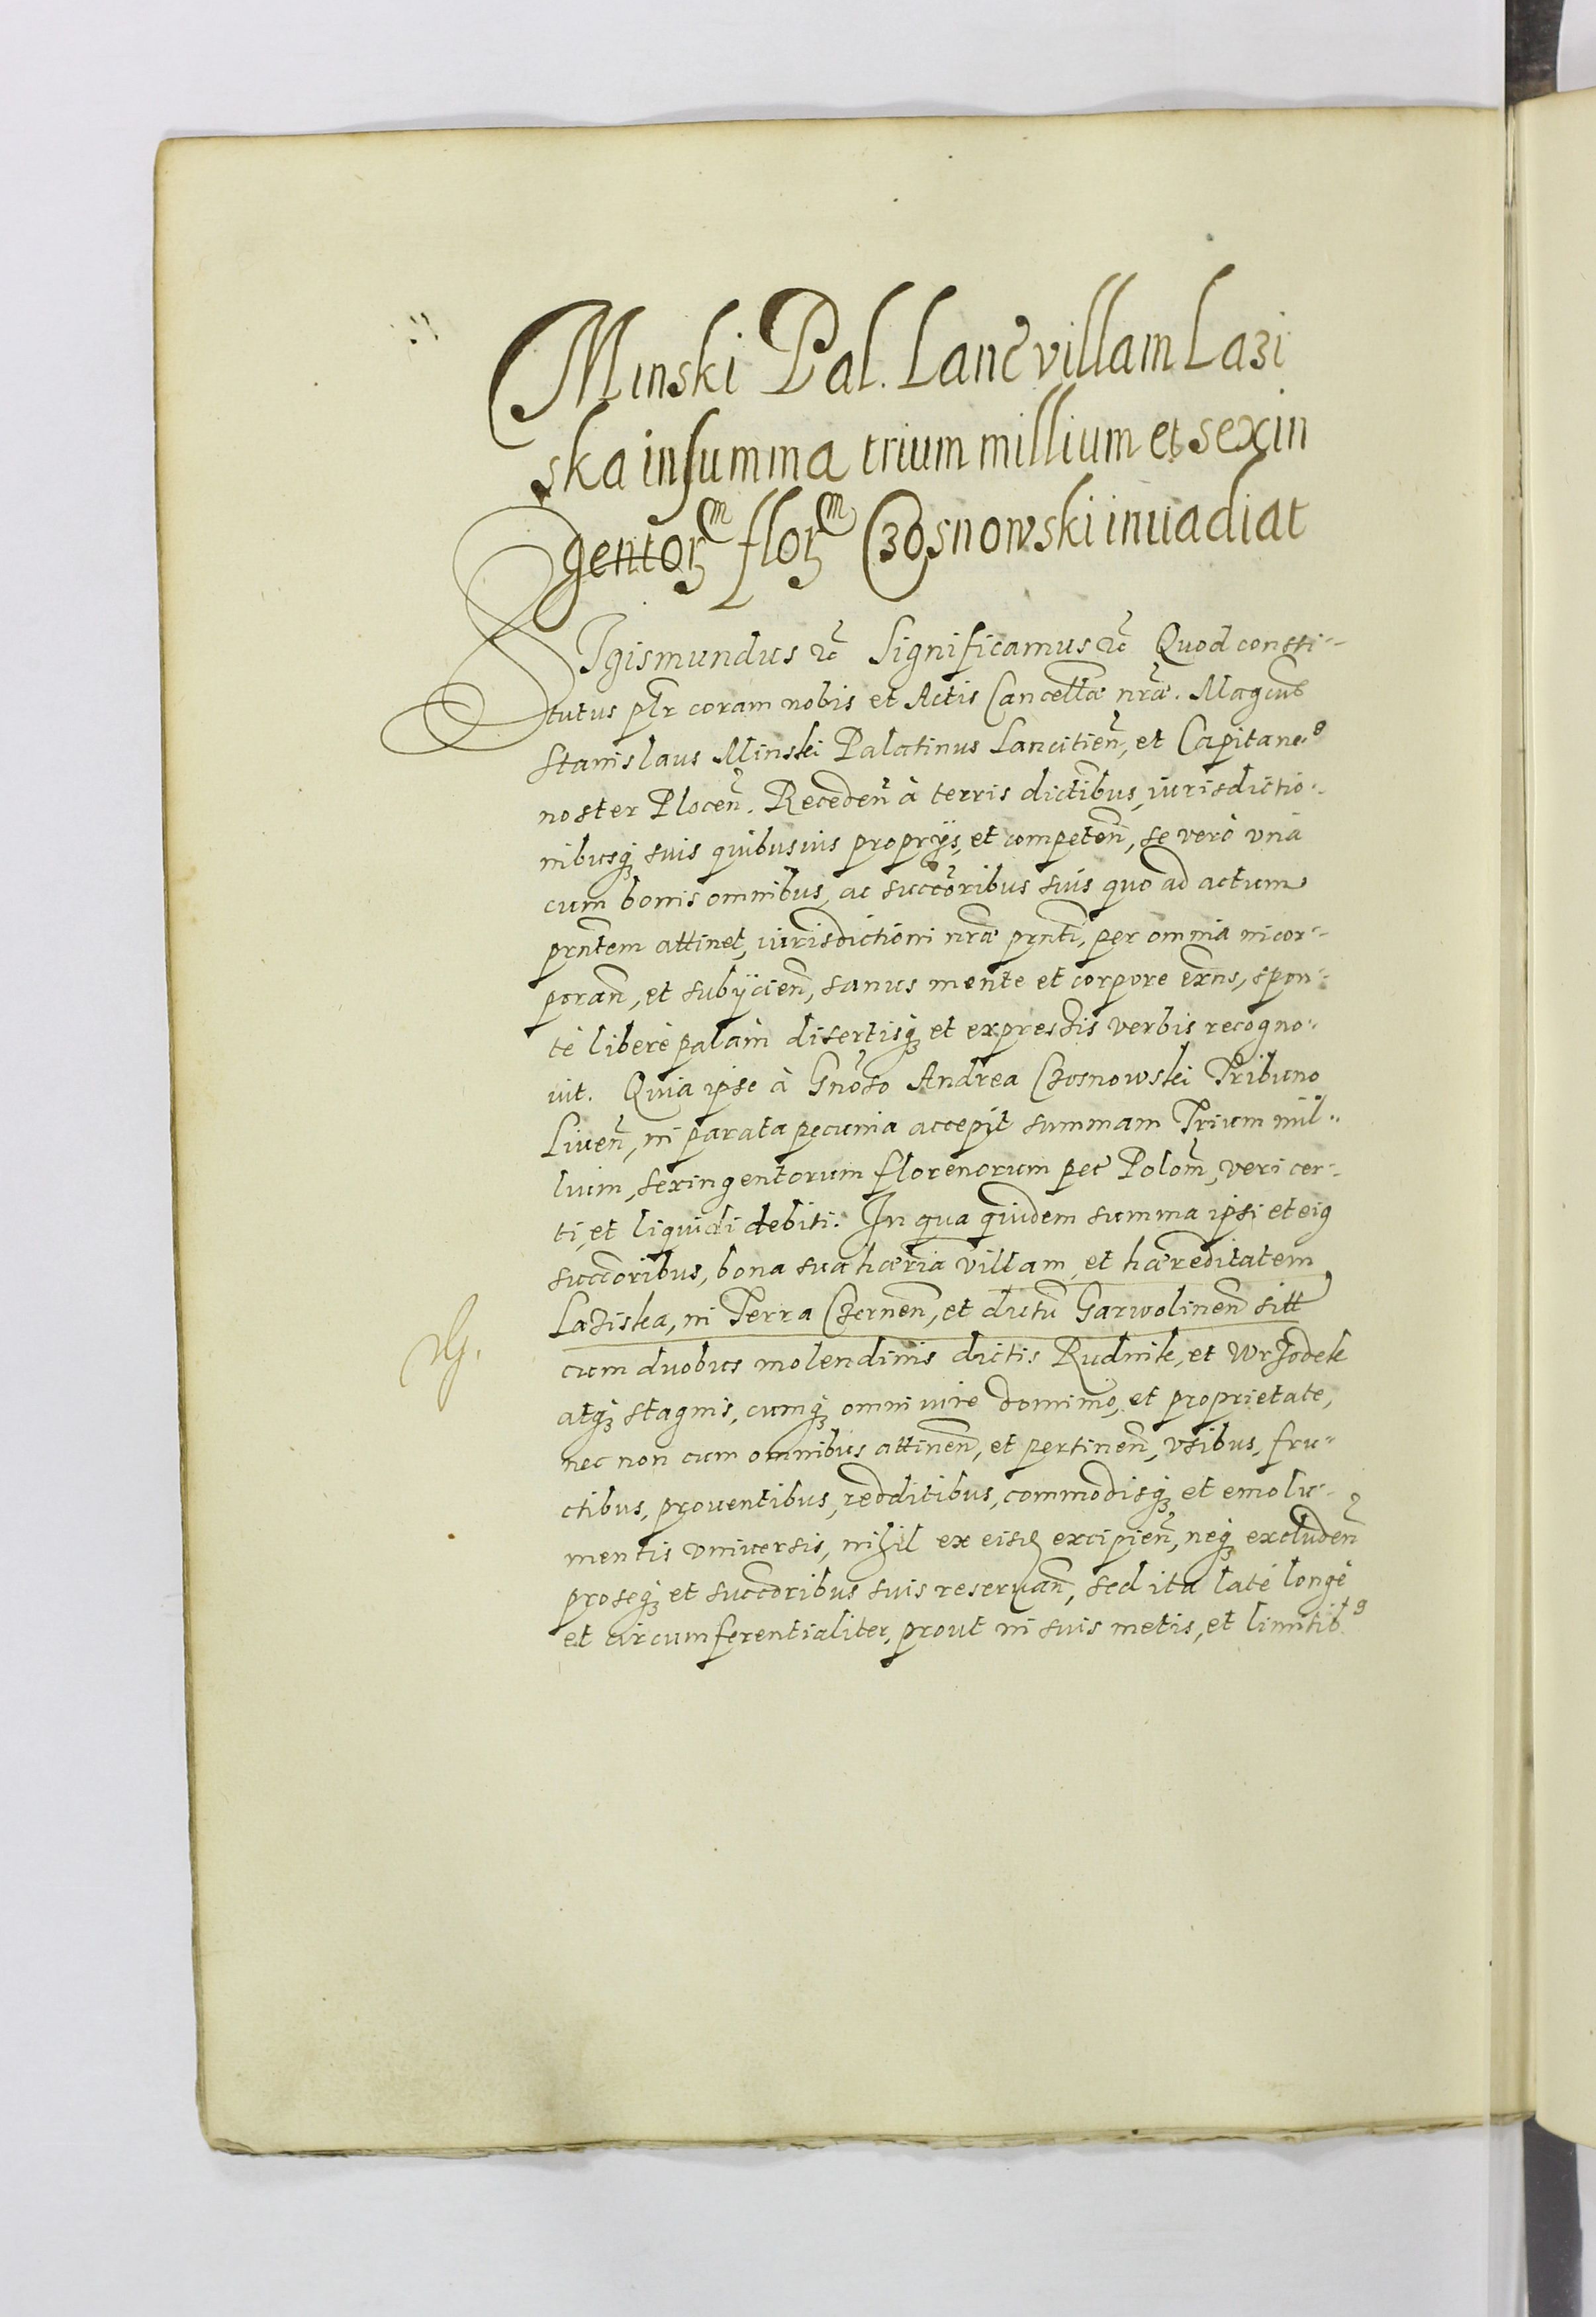 Minski Pal. Lanc̃ villam Lazi
ska in summa trium millium et sexin
gentorꝝᵐ florꝝᵐ Czosnowski inuadiat
SIgismundus ꝛc̃ Significamus ꝛc̃ Quod consti-
tutus plr̃ coram nobis et Actis Cancellæ nr̃æ. Magcus
Stanislaus Minski Palatinus Lancitieñ, et Capitane⁹
noster Ploceñ. Recedeñ à terris dictibus, iurisdictio-
nibusqꝫ suis quibusuis proprÿs, et competeñ, se verò vnà
cum bonis omnibus, ac succõribus suis quo ad actum
prñtem attinet, iurisdictioni nr̃æ prñti, per omnia incor-
porañ, et subÿcieñ, sanus mente et corpore exñs, spon-
te liberè palàm disertisqꝫ et expressis verbis recogno-
uit. Quia ipse à Gnõso Andrea Czosnowski Tribuno
Liueñ, in parata pecunia accepit summam Trium mil-
lium, sexingentorum florenorum pec̃ Poloñ, veri cer-
ti, et liquidi debiti. In qua quidem summa ipsi et eiꝰ
succõribus, bona sua hæria villam, et hæreditatem
Laziska, in Terra Czerneñ, et dictu Garwolineñ sitt
cum duobus molendinis dictis Rudnik, et Wrzodek
atqꝫ stagnis, cumqꝫ omni iure dominio, et proprietate,
nec non cum omnibus attineñ, et pertineñ, vsibus, fru-
ctibus, prouentibus, redditibus, commodisqꝫ et emolu-
mentis vniuersis, nihil ex eisd excipieñ, neqꝫ excludeñ
pro seqꝫ et succõribus suis reseruañ, sed ita latè longè
et circumferentialiter, prout in suis metis, et limitib⁹